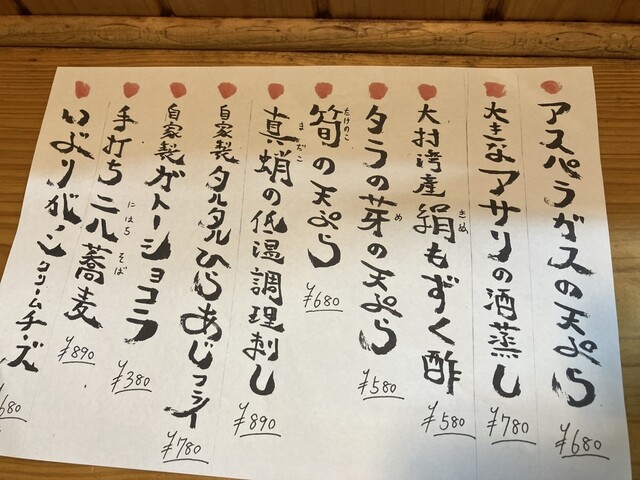 アスパラガスの天ぷら ¥680
大きなアサリの酒蒸し ¥780
大村湾産絹もずく酢 ¥580
きぬ
タラの芽の天ぷら ¥580
め
筍の天ぷら ¥680
たけのこ
真蛸の低温調理刺し ¥890
まだこ
自家製タルタルひらあじフライ ¥780
自家製ガトーショコラ ¥380
手打ち二八蕎麦 ¥890
にはち そば
いぶりがっこクリームチーズ 680